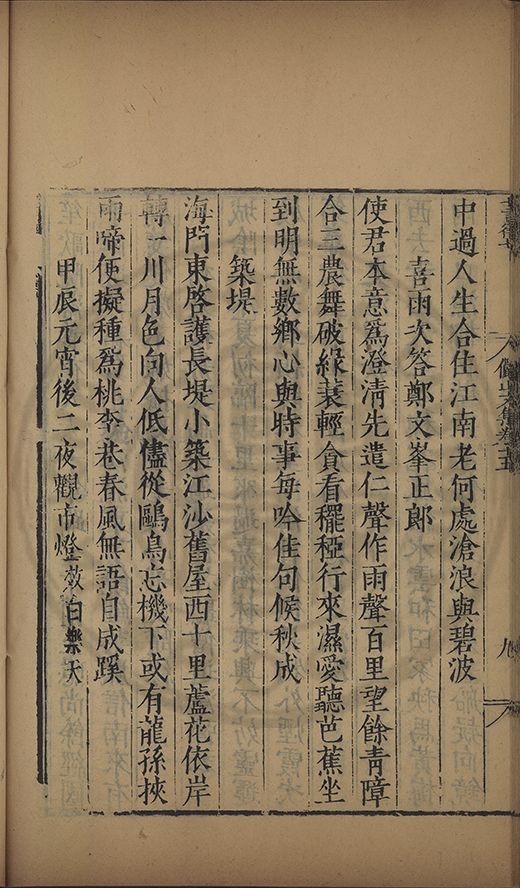 中過人生合住江南老何處滄浪與碧波
喜雨次答鄭文峯正郎
使君本意爲澄清先遣仁聲作雨聲百里望餘青障
合三農舞破綠蓑輕貪看䆉稏行來濕愛聽芭蕉坐
到明無數鄉心與時事每吟佳句候秋成
築堤
海門東啓護長堤小築江沙舊屋西十里蘆花依岸
轉一川月色向人低儘從鷗鳥忘機下或有龍孫挾
雨啼便擬種爲桃李巷春風無語自成蹊
甲辰元宵後二夜觀市燈效白樂天